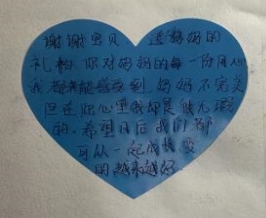 谢谢宝贝 送妈妈的
礼物 你对妈妈的每一份用心
我都能感受到 妈妈不完美
但在你心里我却是
的。希望日后我们都
可以一起成长变
的越来越好